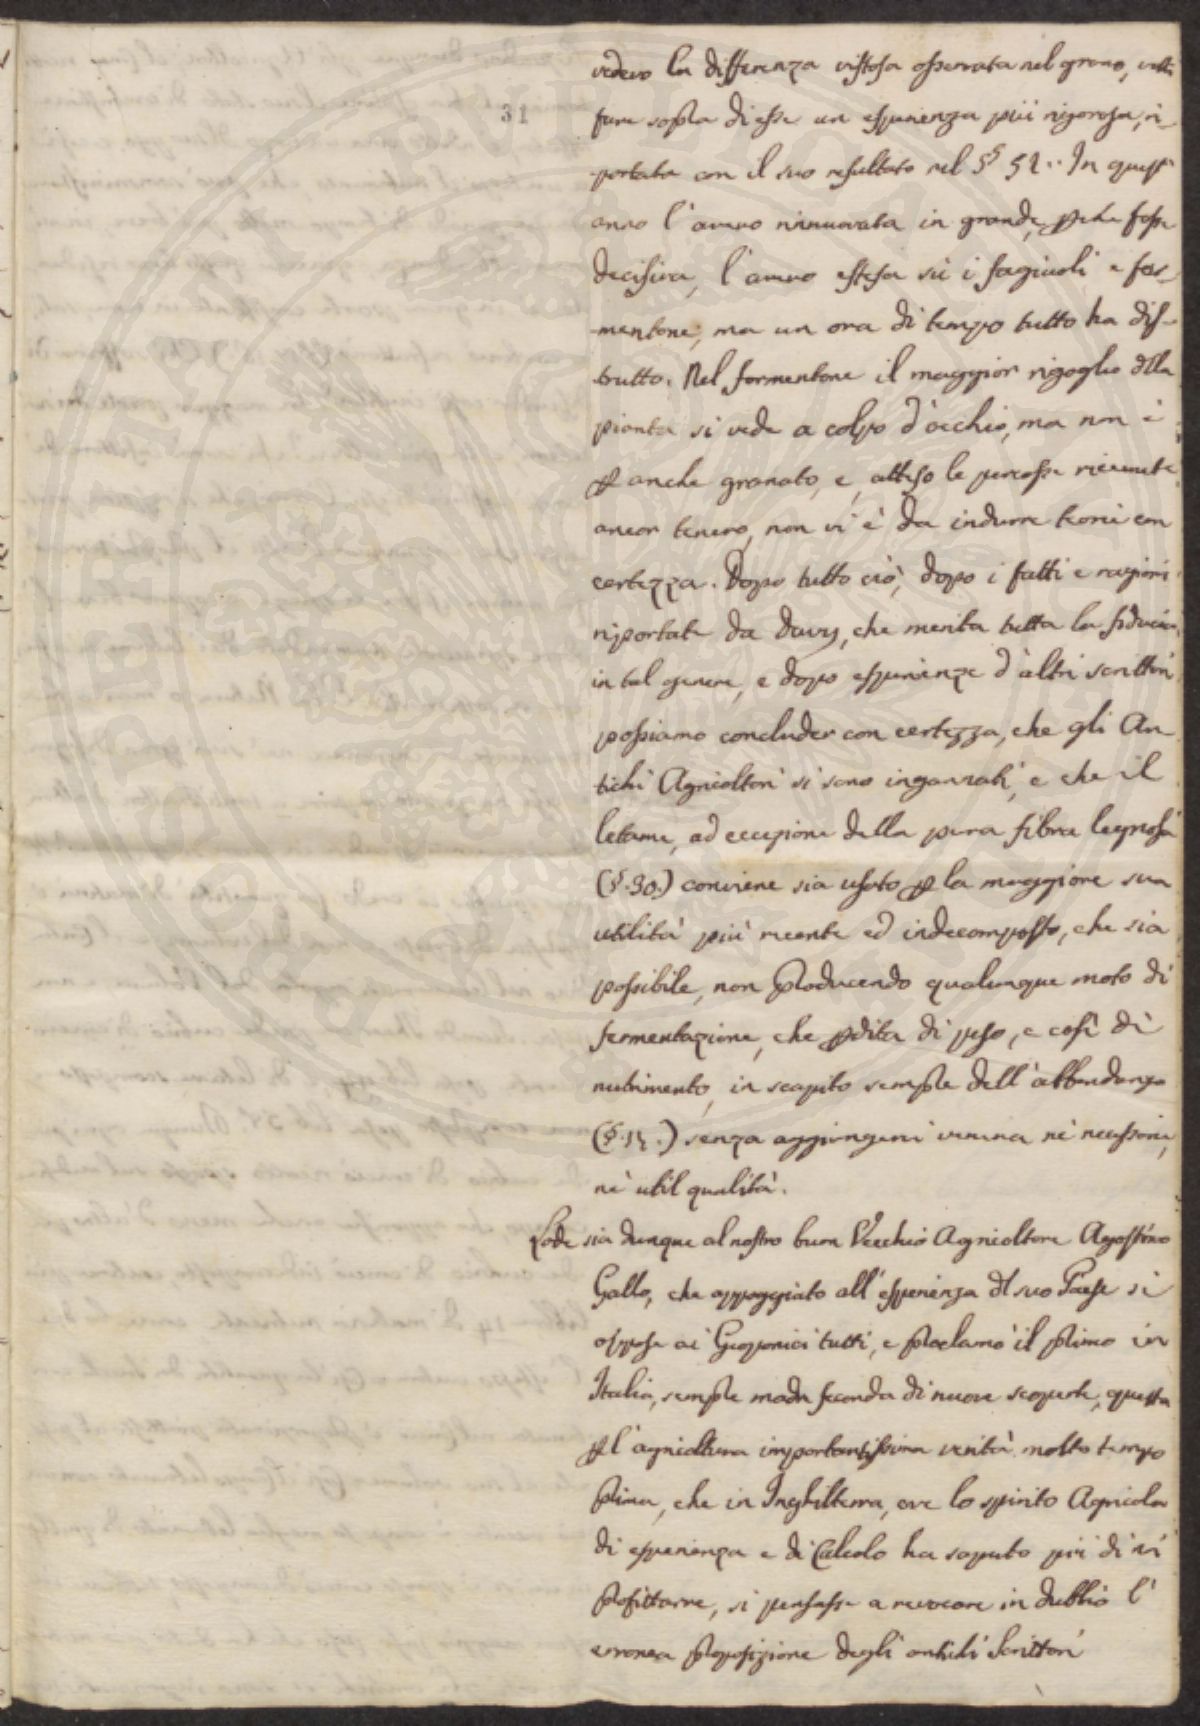 31
vedevo la differenza vistosa osservata nel grano, volli
fare sopra di esse un esperienza più rigorosa, ri-
portata con il suo resultato nel §§ 52.. In quest'
anno l'avevo rinnuovata in grande, perche fosse
decisiva, l'avevo estesa sù i fagiuoli e for-
mentone, ma un ora di tempo tutto ha dis-
trutto. Nel formentone il maggior rigoglio della
pianta si vede a colpo d'occhio, ma non è
per anche granato, e, atteso le percosse ricevute
ancor tenero, non vi è da indurre teorie con
certezza. Dopo tutto ciò, dopo i fatti e ragioni
riportate da Davy, che merita tutta la fiducia
in tal genere, e dopo esperienze d'altri scrittori
possiamo concluder con certezza, che gli An-
tichi Agricoltori si sono ingannati, e che il
letame, ad eccezione della pura fibra legnosa
(§.30.) conviene sia usato per la maggiore sua
utilità più recente ed indecomposto, che sia
possibile, non producendo qualunque moto di
fermentazione, che perdita di peso, e così di
nutrimento, in scapito sempre dell'abbondanza
(§.15.) senza aggiungervi veruna nè necessaria,
nè util qualità.
Lode sia dunque al nostro buon Vecchio Agricoltore Agostino
Gallo, che appoggiato all'esperienza del suo Paese si
oppose ai Geoponici tutti, e proclamò il primo in
Italia, sempre madre feconda di nuove scoperte, questa
per l'agricoltura importantissima verità molto tempo
prima, che in Inghilterra, ove lo spirito Agricola
di esperienza e di Calcolo ha saputo più di noi
profittarne, si pensasse a revocare in dubbio l'
erronea proposizione degli antichi Scrittori